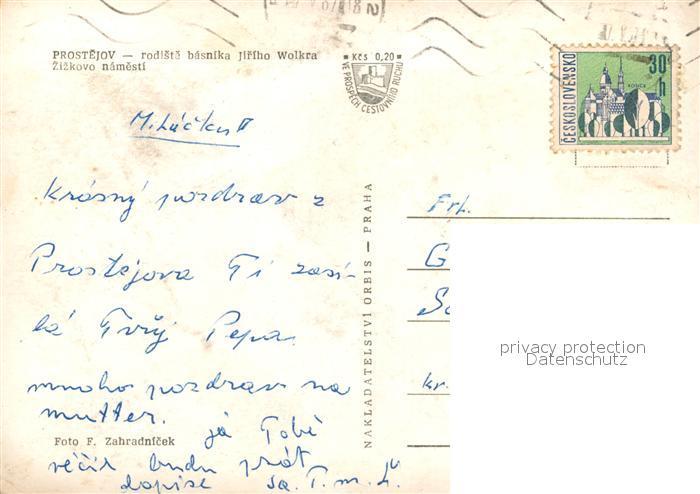 PROSTĚJOV — rodiště básníka Jiřího Wolkra
Žižkovo náměstí
Kčs 0,20
VE PROSPĚCH CESTOVNÍHO RUCHU
ČESKOSLOVENSKO
30 h
KOŠICE
Miláčku
Krásný pozdrav z
Prostějova Ti zasí-
lá Tvůj Pepa.
mnoho pozdrav na
mutter.
já Tobě
věčie budu prát
dopise
Foto F. Zahradníček
NAKLADATELSTVÍ ORBIS — PRAHA
Frl.
G
Sc
kr.
privacy protection
Datenschutz